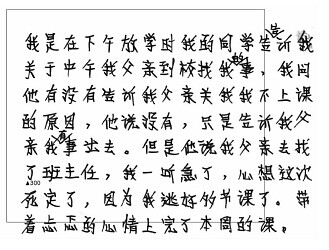 我是在下午放学时我的同学告诉我
关于中午我父亲到校找我的事，我问
他有没有告诉我父亲关我我不上课
的原因，他说没有，只是告诉我父
亲我事出去。但是他说我父亲去找
了班主任，我一听急了，心想这次
▲300
死定了，因为我逃好的节课了。带
着忐忑的心情上完了本周的课。